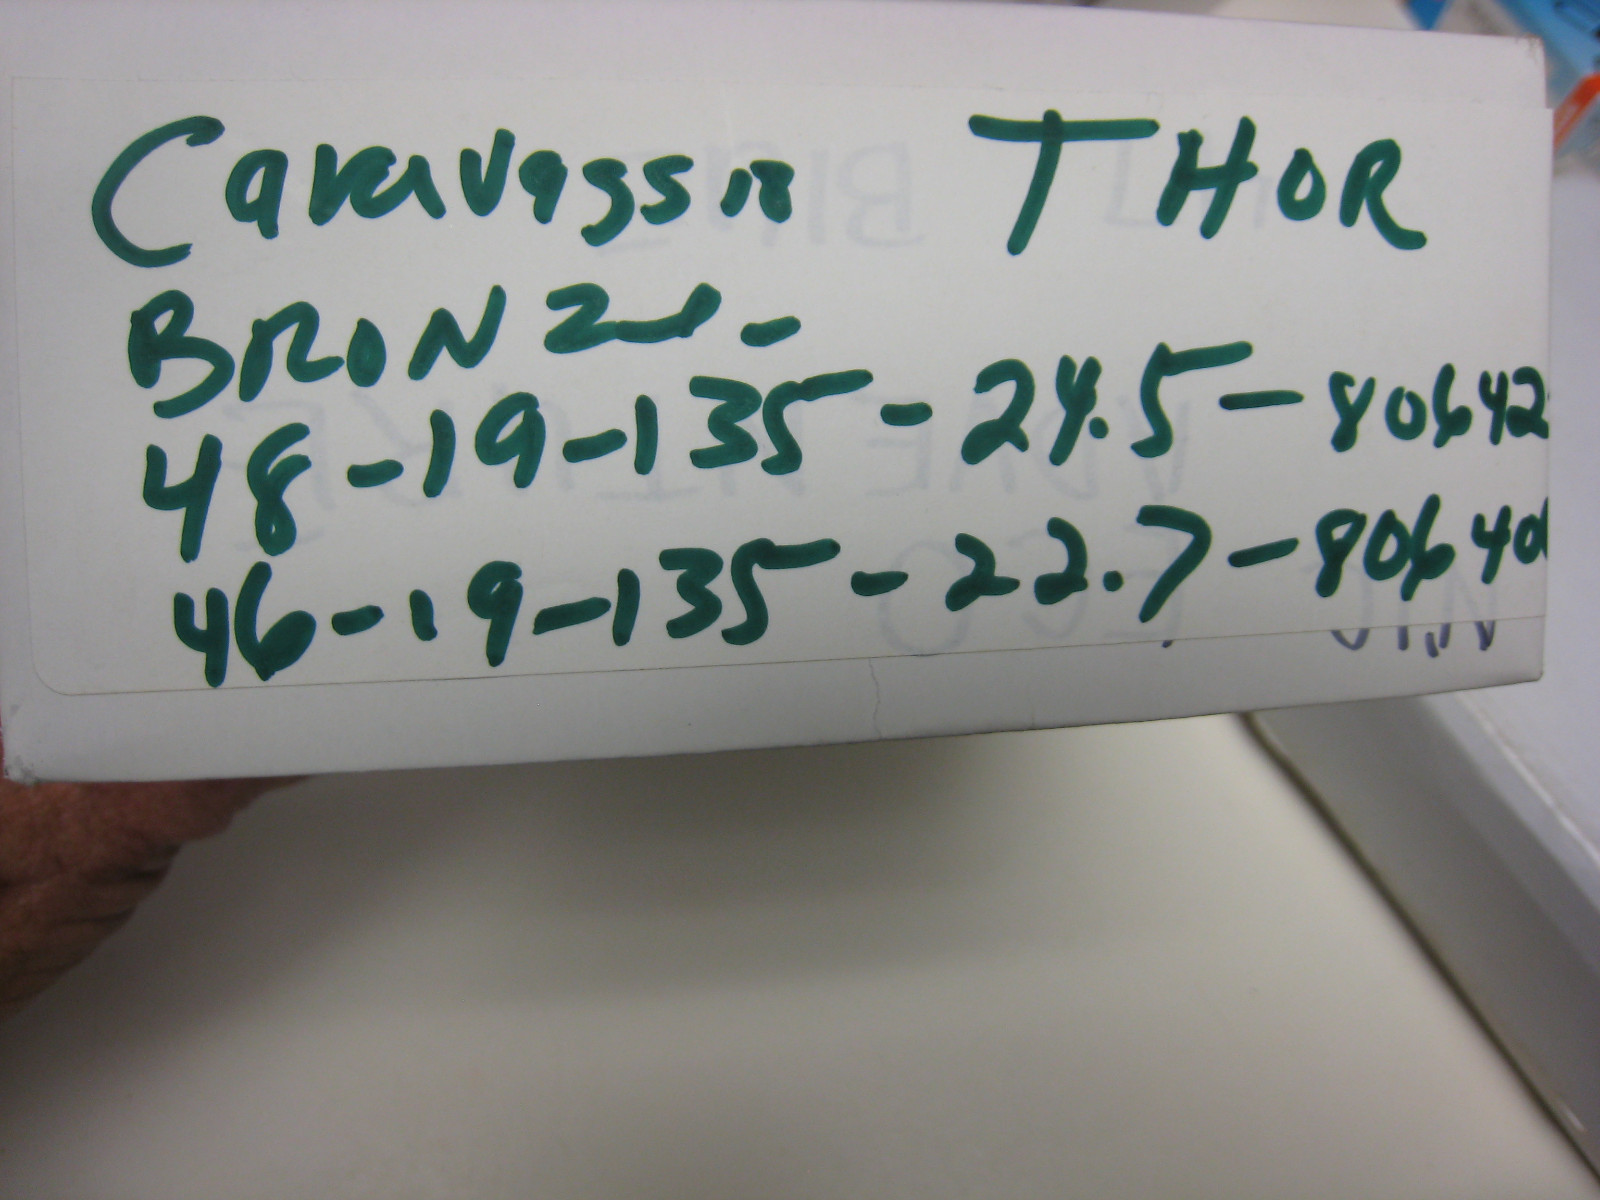 Caravaggio THOR
BRONZe -
48-19-135-24.5-80642
46-19-135-22.7-80640